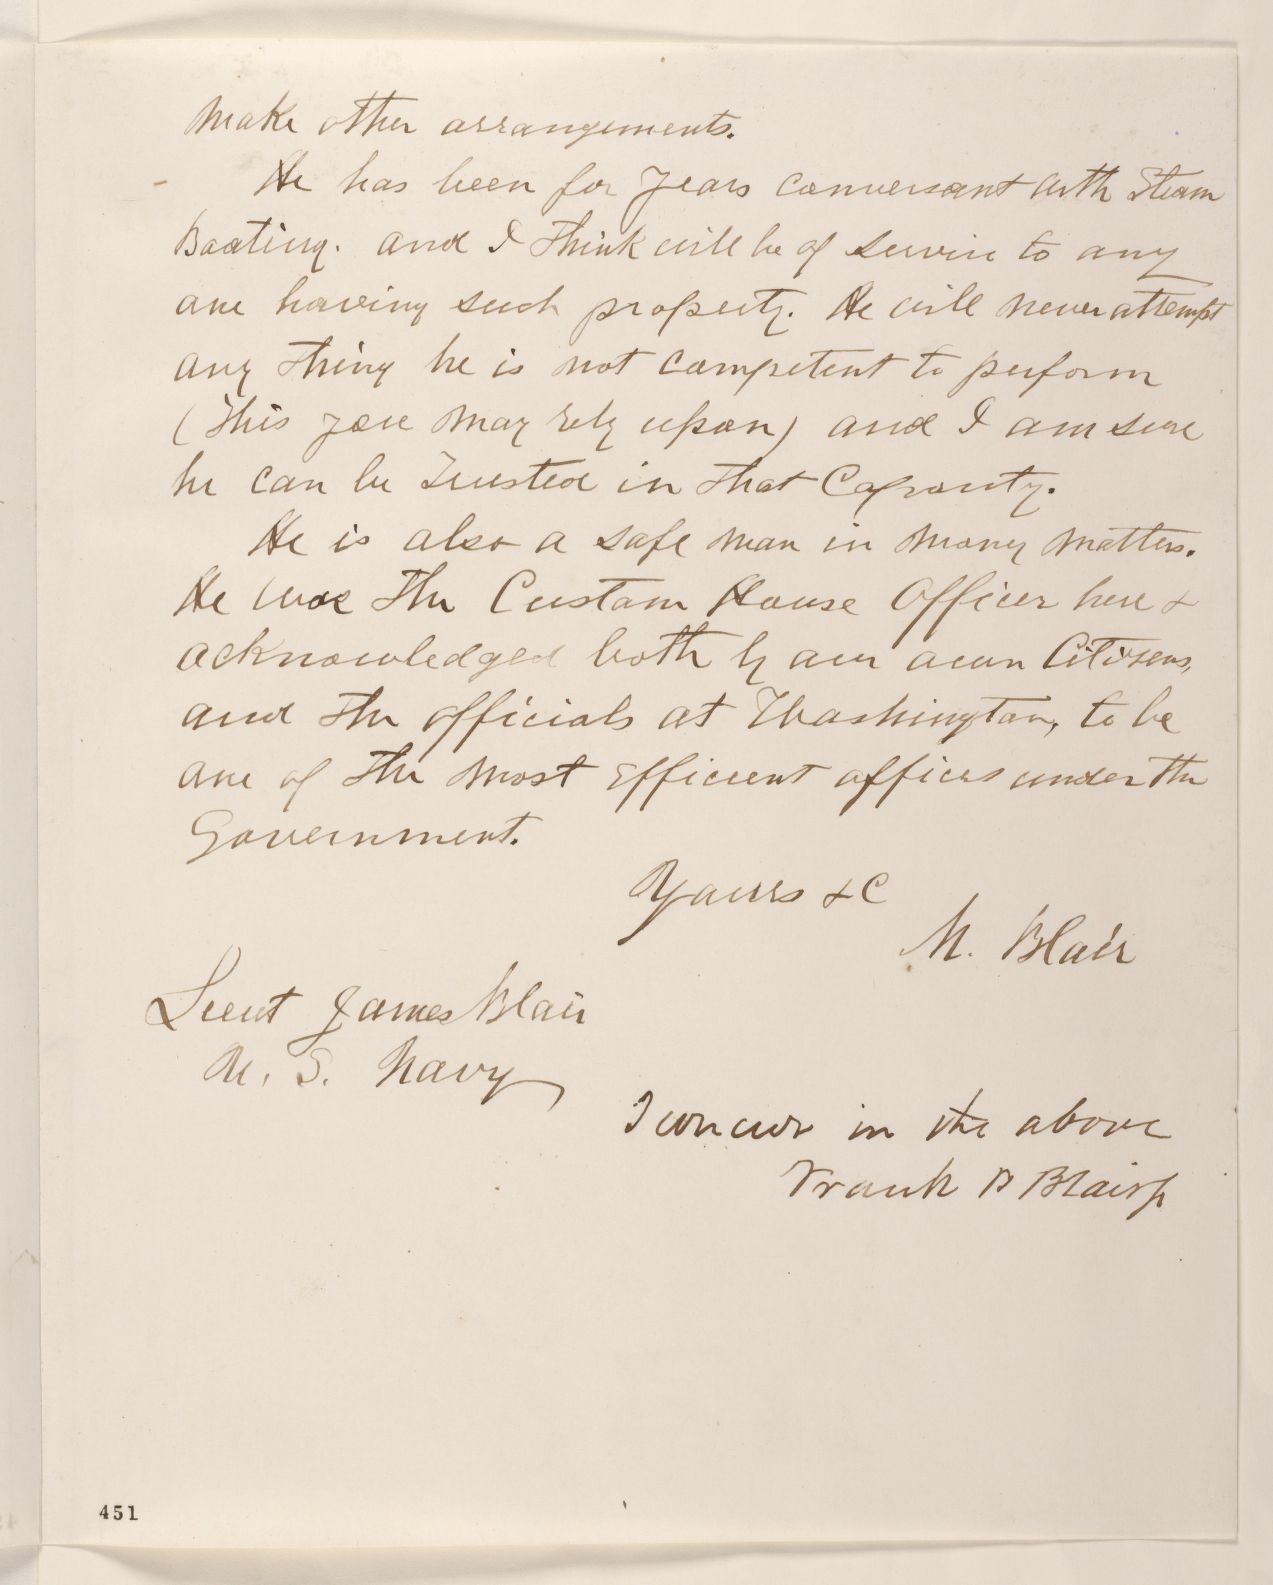 make other arrangements.
He has been for years conversant with Steam
Boating. and I think will be of service to any
one having such property. He will never attempt
any thing he is not competent to perform
(this you may rely upon) and I am sure
he can be trusted in that Capacity.
He is also a safe man in many matters.
He was the Custom House Officer here &
acknowledged both by our own Citizens,
and the officials at Washington, to be
one of the most Efficient officers under the
Government.
Yours &C
M. Blair
Lieut James Blair
U. S. Navy
I concur in the above
Frank P Blair jr
451